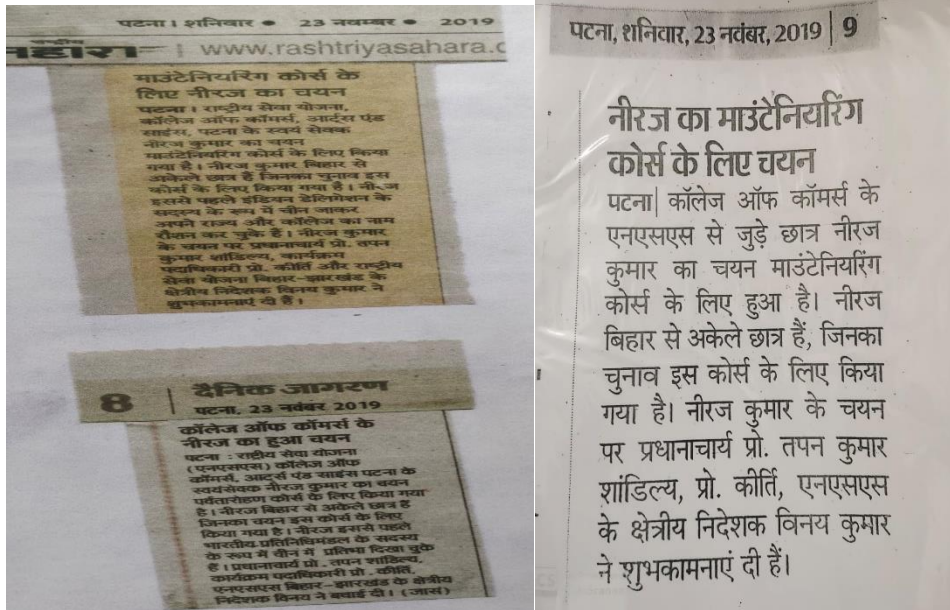 पटना । शनिवार ● 23 नवम्बर ● 2019
www.rashtriyasahara.c
माउंटेनियरिंग कोर्स के
लिए नीरज का चयन
पटना । राष्ट्रीय सेवा योजना,
कॉलेज ऑफ कॉमर्स, आर्ट्स एंड
साइंस, पटना के स्वयं सेवक
नीरज कुमार का चयन
माउंटेनियरिंग कोर्स के लिए किया
गया है। नीरज कुमार बिहार से
अकेले छात्र हैं जिनका चुनाव इस
कोर्स के लिए किया गया है। नीरज
इससे पहले इंडियन डेलिगेशन के
सदस्य के रूप में चीन जाकर
अपने राज्य और कॉलेज का नाम
रौशन कर चुके हैं। नीरज कुमार
के चयन पर प्रधानाचार्य प्रो. तपन
कुमार शांडिल्य, कार्यक्रम
पदाधिकारी प्रो. कीर्ति और राष्ट्रीय
सेवा योजना बिहार-झारखंड के
क्षेत्रीय निदेशक विनय कुमार ने
शुभकामनाएं दी हैं।
8 | दैनिक जागरण
पटना, 23 नवंबर 2019
कॉलेज ऑफ कॉमर्स के
नीरज का हुआ चयन
पटना : राष्ट्रीय सेवा योजना
(एनएसएस) कॉलेज ऑफ
कॉमर्स, आर्ट्स एंड साइंस पटना के
स्वयंसेवक नीरज कुमार का चयन
पर्वतारोहण कोर्स के लिए किया गया
है। नीरज बिहार से अकेले छात्र हैं
जिनका चयन इस कोर्स के लिए
किया गया है। नीरज इससे पहले
भारतीय प्रतिनिधिमंडल के सदस्य
के रूप में चीन में प्रतिभा दिखा चुके
हैं। प्रधानाचार्य प्रो. तपन शांडिल्य,
कार्यक्रम पदाधिकारी प्रो. कीर्ति,
एनएसएस बिहार-झारखंड के क्षेत्रीय
निदेशक विनय ने बधाई दी। (जासं)
पटना, शनिवार, 23 नवंबर, 2019 | 9
नीरज का माउंटेनियरिंग
कोर्स के लिए चयन
पटना| कॉलेज ऑफ कॉमर्स के
एनएसएस से जुड़े छात्र नीरज
कुमार का चयन माउंटेनियरिंग
कोर्स के लिए हुआ है। नीरज
बिहार से अकेले छात्र हैं, जिनका
चुनाव इस कोर्स के लिए किया
गया है। नीरज कुमार के चयन
पर प्रधानाचार्य प्रो. तपन कुमार
शांडिल्य, प्रो. कीर्ति, एनएसएस
के क्षेत्रीय निदेशक विनय कुमार
ने शुभकामनाएं दी हैं।